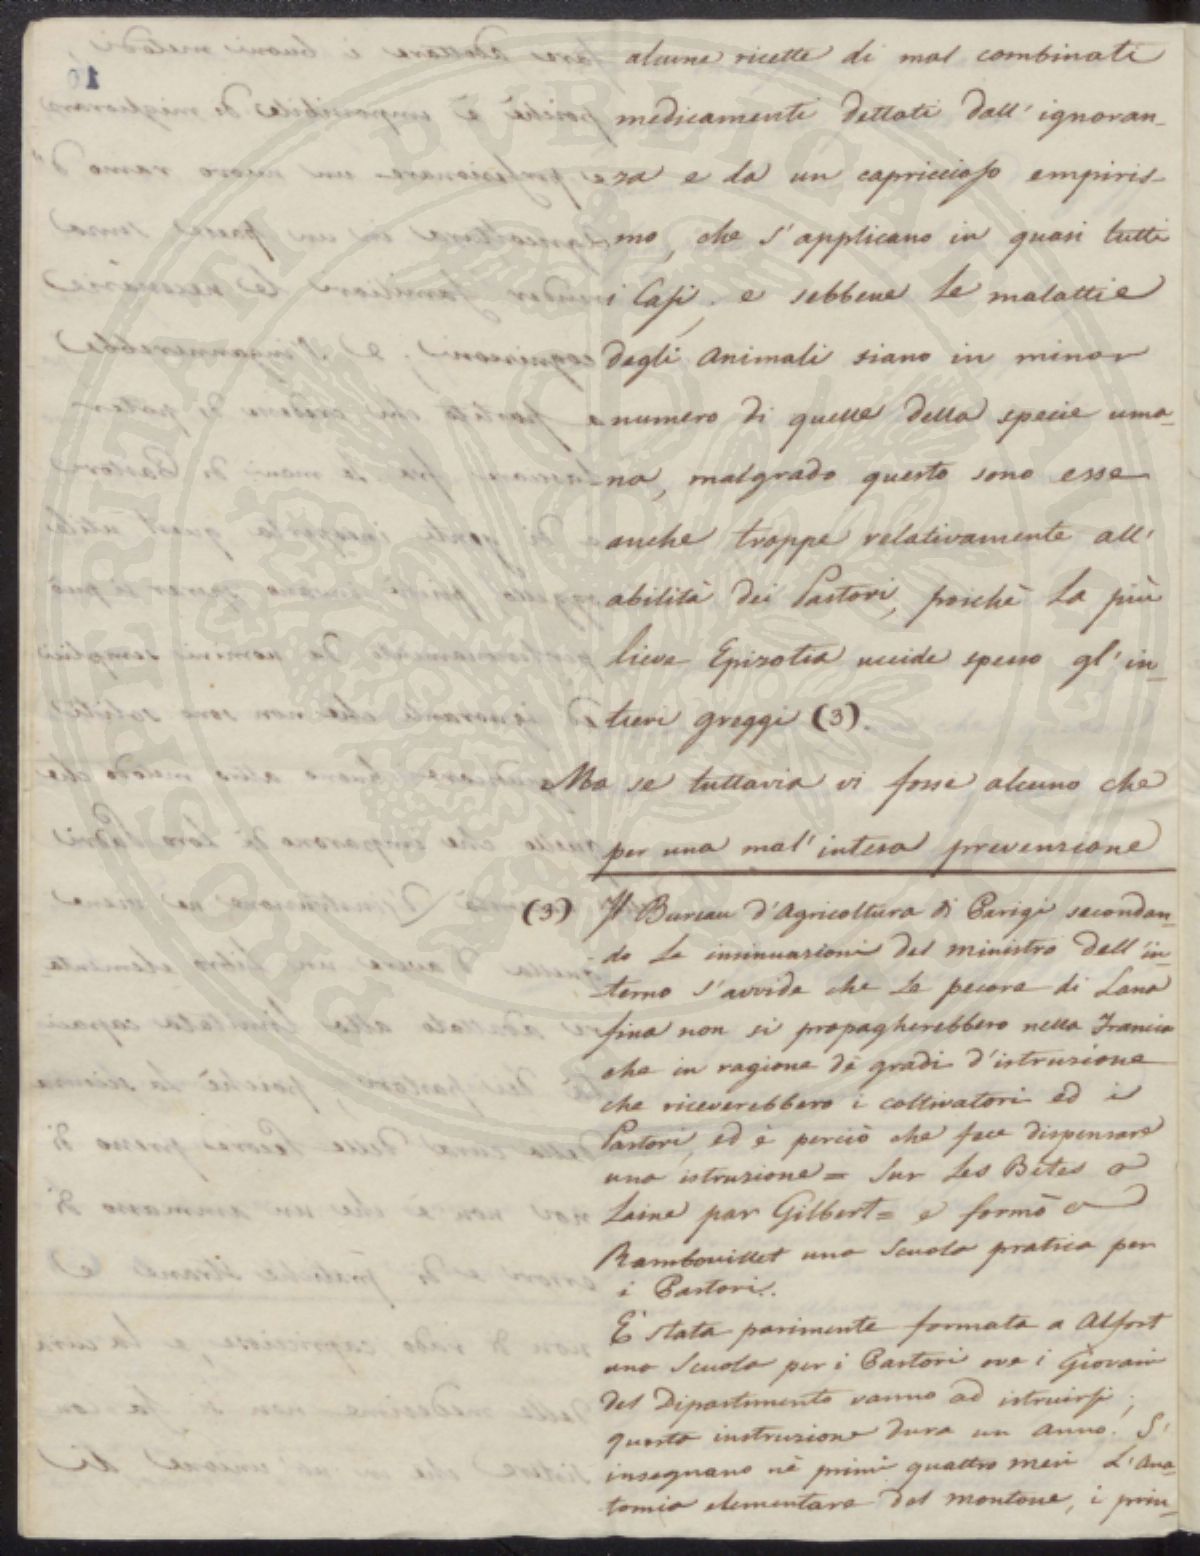 alcune ricette di mal combinati
medicamenti dettati dall' ignoran_
za e da un capriccioso empiris_
mo, che s' applicano in quasi tutti
i Casi, e sebbene le malattie
degli animali siano in minor
numero di quelle della specie uma_
na, malgrado questo sono esse
anche troppe relativamente all'
abilità dei Pastori, poichè la più
lieve Epizotia uccide spesso gl' in_
tieri greggi (3).
Ma se tuttavia vi fosse alcuno che
per una mal' intesa prevenzione
(3) Il Bureau d'Agricoltura di Parigi secondan_
do le insinuazioni del ministro dell' in_
terno s' avvide che le pecore di Lana
fina non si propagherebbero nella Francia
che in ragione dè gradi d' istruzione
che riceverebbero i coltivatori ed i
Pastori, ed è perciò che fece dispensare
una istruzione = Sur les Bêtes a
Laine par Gilbert = e formò a
Rambouillet una Scuola pratica per
i Pastori.
È stata parimente formata a Alfort
una Scuola per i Pastori ove i Giovani
del Dipartimento vanno ad istruirsi;
questa instruzione dura un anno. S'
insegnano nè primi quattro mesi L' Ana_
tomia elementare del montone, i prin_